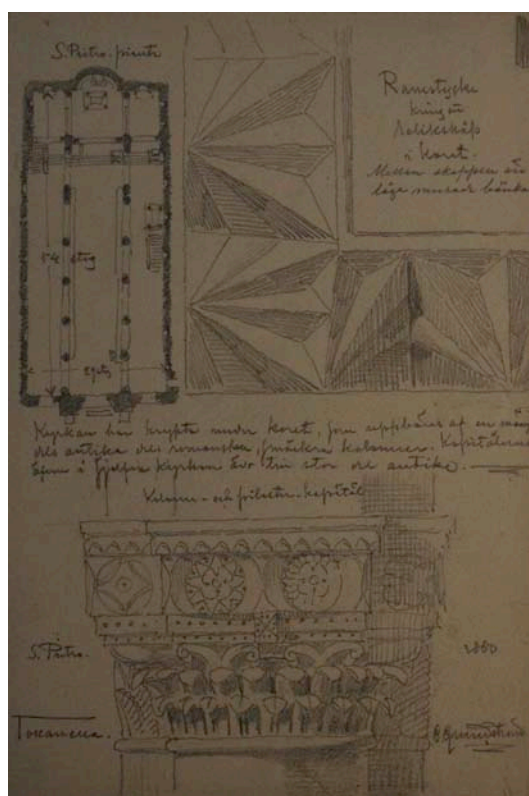 S. Pietro. pianta
Ramstycke
kring ett
Relikskåp
i Koret.
Mellan skåpen äro
låga murade bänkar
54 steg
Kyrkan har krypta under koret, som uppbäres af en mängd
dels antika dels romanska, smäckra kolonner. Kapitälerna
äfven i sjelfva kyrkan äro till stor del antika.
Kolonn- och pilaster-kapitäl
S. Pietro.
1880
Toscanella.